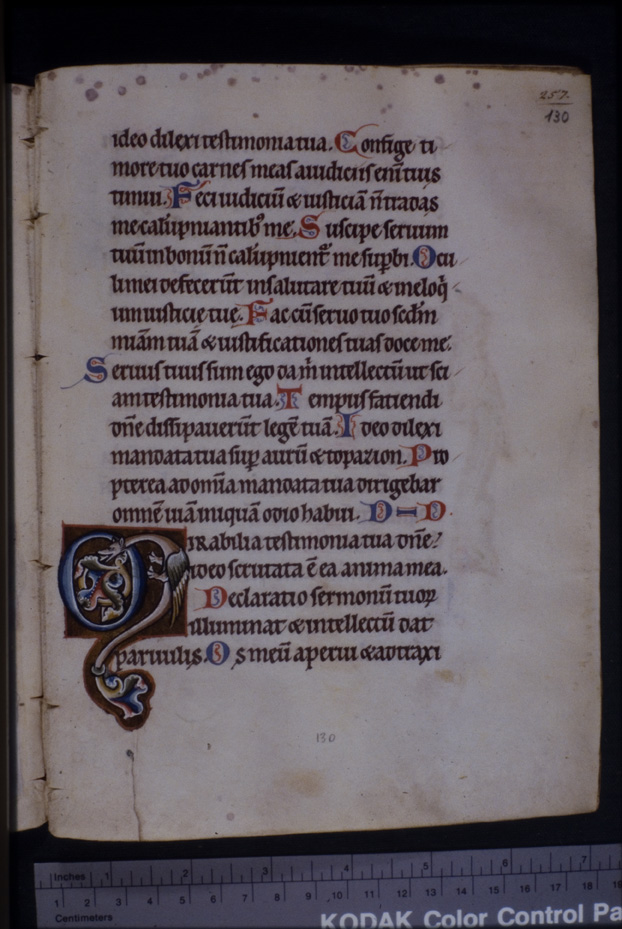 257.
130
ideo dilexi testimonia tua. Confige ti
more tuo carnes meas a iudiciis eni̅ tuis
timui. Feci iudiciu̅ & iusticia̅ n̅ tradas
me calu̅pniantib᷒ me. Suscipe seruum
tuu̅ in bonu̅ n̅ calu̅pnient᷒ me sup̱bi. Ocu
li mei defecer̅t in salutare tuu̅ & in eloq̇
ium iusticie tue. Fac cu̅ seruo tuo scd̅m
mia̅m tua̅ & iustificationes tuas doce me.
Seruus tuus sum ego da m̅ intellectu̅ ut sci
am testimonia tua. Tempus faciendi
dn̅e dissipauer̅t lege̅ tua̅. Ideo dilexi
mandata tua sup̱ auru̅ & topazion. Pro
pterea ad om̅ia mandata tua dirigebar
omne̅ uia̅ iniqua̅ odio habui.
Mirabilia testimonia tua dn̅e.
ideo scrutata e̅ ea anima mea.
Declaratio sermonu̅ tuoꝝ
illuminat & intellectu̅ dat
paruulis. Os meu̅ aperui & adtraxi
130
Inches 1 2 3 4 5 6 7
1 2 3 4 5 6 7 8 9 10 11 12 13 14 15 16 17 18 19
Centimeters
KODAK Color Control Pa